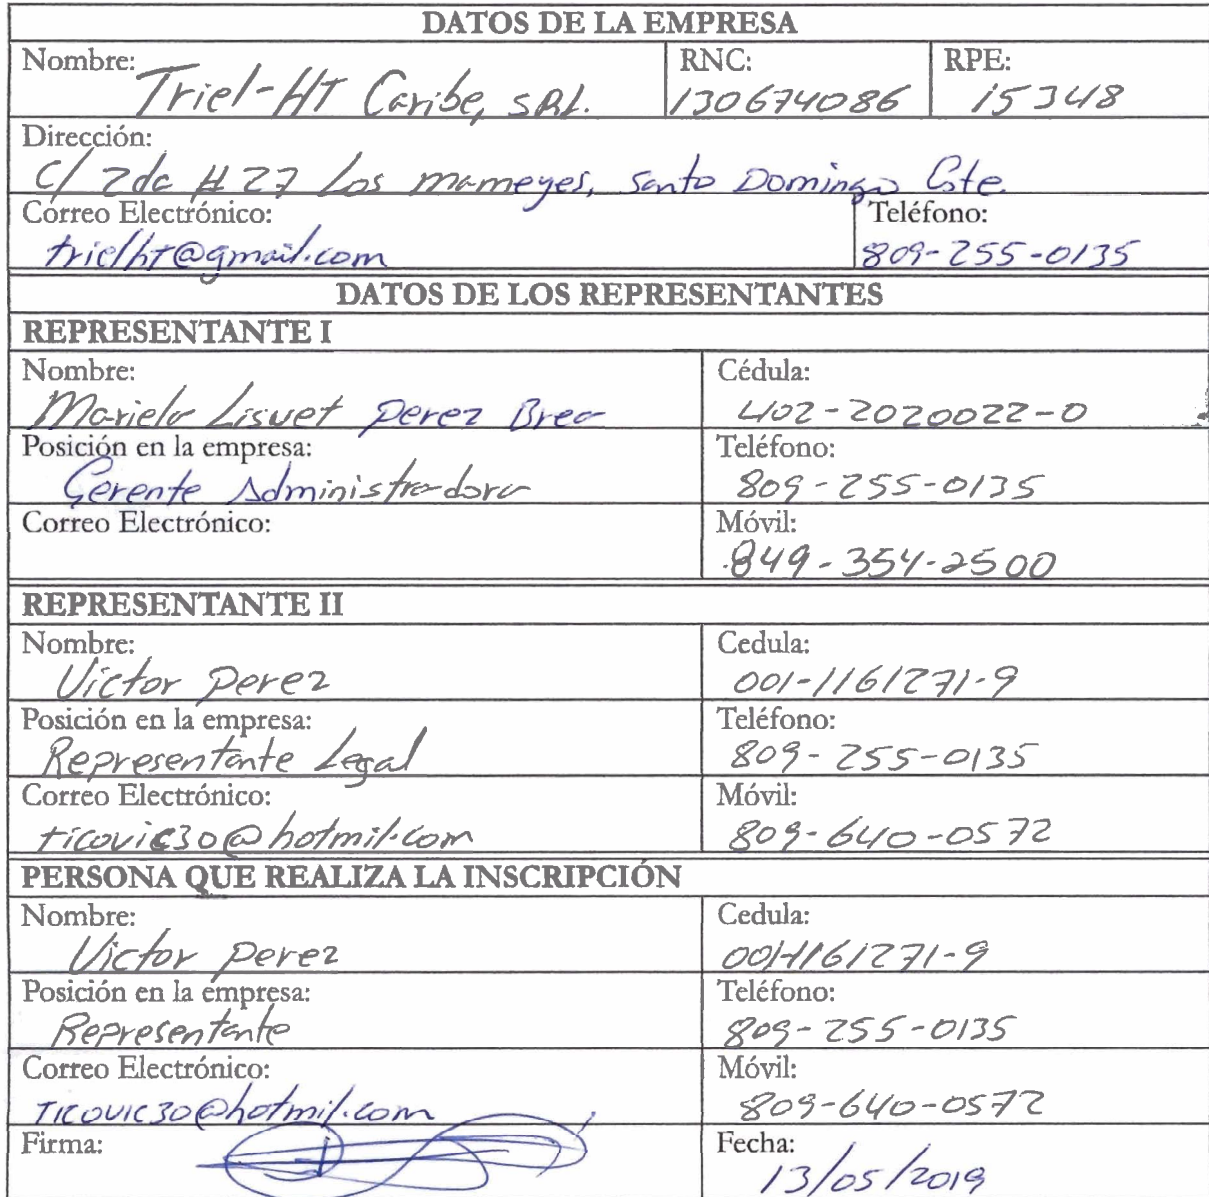 DATOS DE LA EMPRESA
Nombre: Triel-HT Caribe, SRL. RNC: 130674086 RPE: 15348
Dirección:
C/ 2da #27 Los mameyes, Santo Domingo Este.
Correo Electrónico: Teléfono:
trielht@gmail.com 809-255-0135
DATOS DE LOS REPRESENTANTES
REPRESENTANTE I
Nombre: Cédula:
Mariela Lisuet Perez Brea 402-2020022-0
Posición en la empresa: Teléfono:
Gerente Administradora 809-255-0135
Correo Electrónico: Móvil:
849-354-2500
REPRESENTANTE II
Nombre: Cedula:
Victor Perez 001-1161271-9
Posición en la empresa: Teléfono:
Representante Legal 809-255-0135
Correo Electrónico: Móvil:
ticovic30@hotmil.com 809-640-0572
PERSONA QUE REALIZA LA INSCRIPCIÓN
Nombre: Cedula:
Victor Perez 001-1161271-9
Posición en la empresa: Teléfono:
Representante 809-255-0135
Correo Electrónico: Móvil:
TICOVIC30@hotmil.com 809-640-0572
Firma: Fecha:
13/05/2019